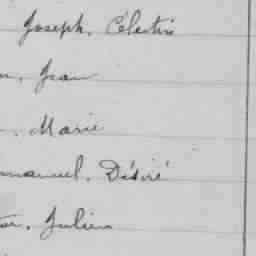 Joseph, Célestin
Jean
, Marie
mmanuel, Désiré
, Julien